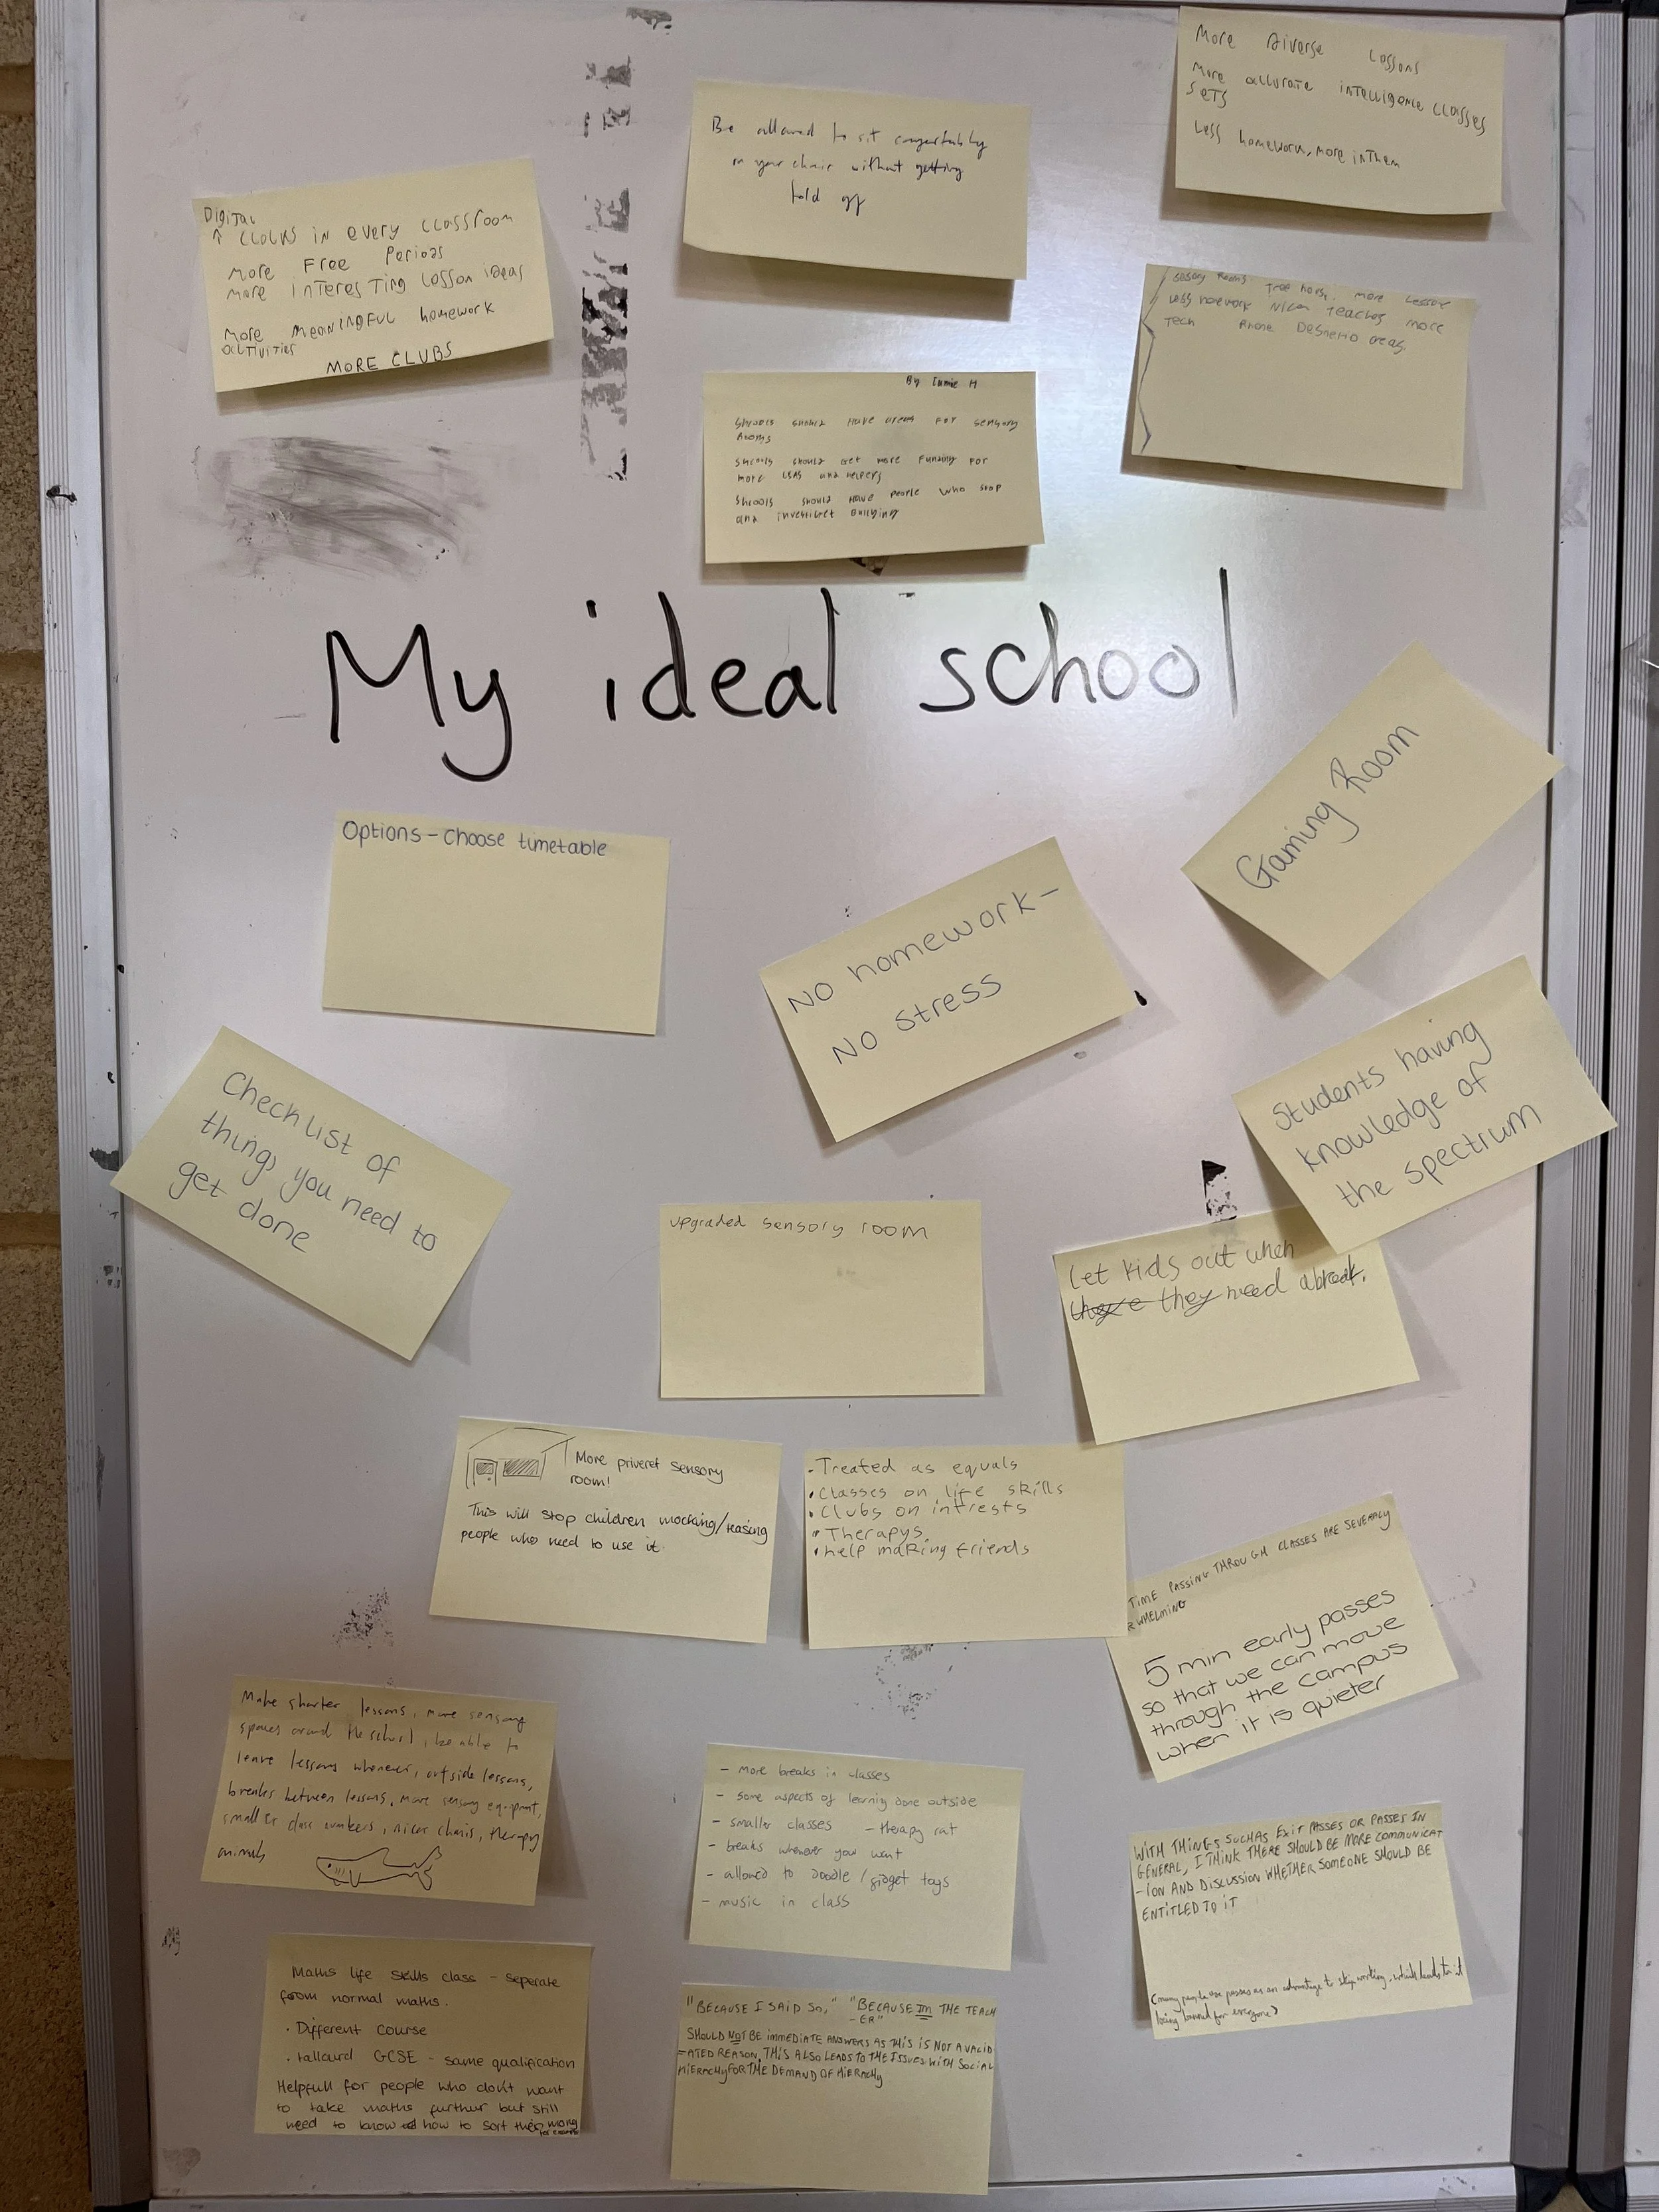 More Diverse Lessons
More accurate intelligence classes
sets
Less homework, more in them
Be allowed to sit comfortably
on your chair without getting
told off
Digital
↑ clocks in every classroom
More Free Periods
More interesting lesson ideas
More meaningful homework
activities
MORE CLUBS
sensory Rooms. Tree more lesson
Less homework Nicer teachers more
Tech Phone areas
By Jamie H
Schools should have areas for sensory
Rooms
Schools should get more funding for
more LSAs and helpers
Schools should have people who stop
and investicet Bullying
My ideal school
Gaming Room
Options - choose timetable
No homework -
No stress
Students having
knowledge of
the spectrum
Checklist of
things you need to
get done
upgraded sensory room
Let kids out when
they need a break.
More priveret sensory
room!
This will stop children mocking/teasing
people who need to use it
- Treated as equals
• Classes on life skills
• Clubs on intrests
• Therapys
• help making friends
TIME PASSING THROUGH CLASSES ARE SEVERALY
RWHELMING
5 min early passes
so that we can move
through the campus
when it is quieter
Make shorter lessons, more sensory
spaces around the school, be able to
leave lessons whenever, outside lessons,
breaks between lessons, more sensory equipment,
smaller class numbers, nicer chairs, therapy
animals
- more breaks in classes
- some aspects of learning done outside
- smaller classes - therapy cat
- breaks whenever you want
- allowed to doodle / fidget toys
- music in class
WITH THINGS SUCH AS EXIT PASSES OR PASSES IN
GENERAL, I THINK THERE SHOULD BE MORE COMMUNICAT
-ION AND DISCUSSION WHETHER SOMEONE SHOULD BE
ENTITLED TO IT
(many people use passes as an advantage to skip working, which leads to it
being banned for everyone)
Maths life skills class - seperate
from normal maths.
• Different course
• tailourd GCSE - same qualification
Helpfull for people who don't want
to take maths further but still
need to know how to sort their money
for example
"BECAUSE I SAID SO," "BECAUSE IM THE TEACH
-ER"
SHOULD NOT BE IMMEDIATE ANSWERS AS THIS IS NOT A VALID
-ATED REASON. THIS ALSO LEADS TO THE ISSUES WITH SOCIAL
HIERACHY FOR THE DEMAND OF HIERACHY